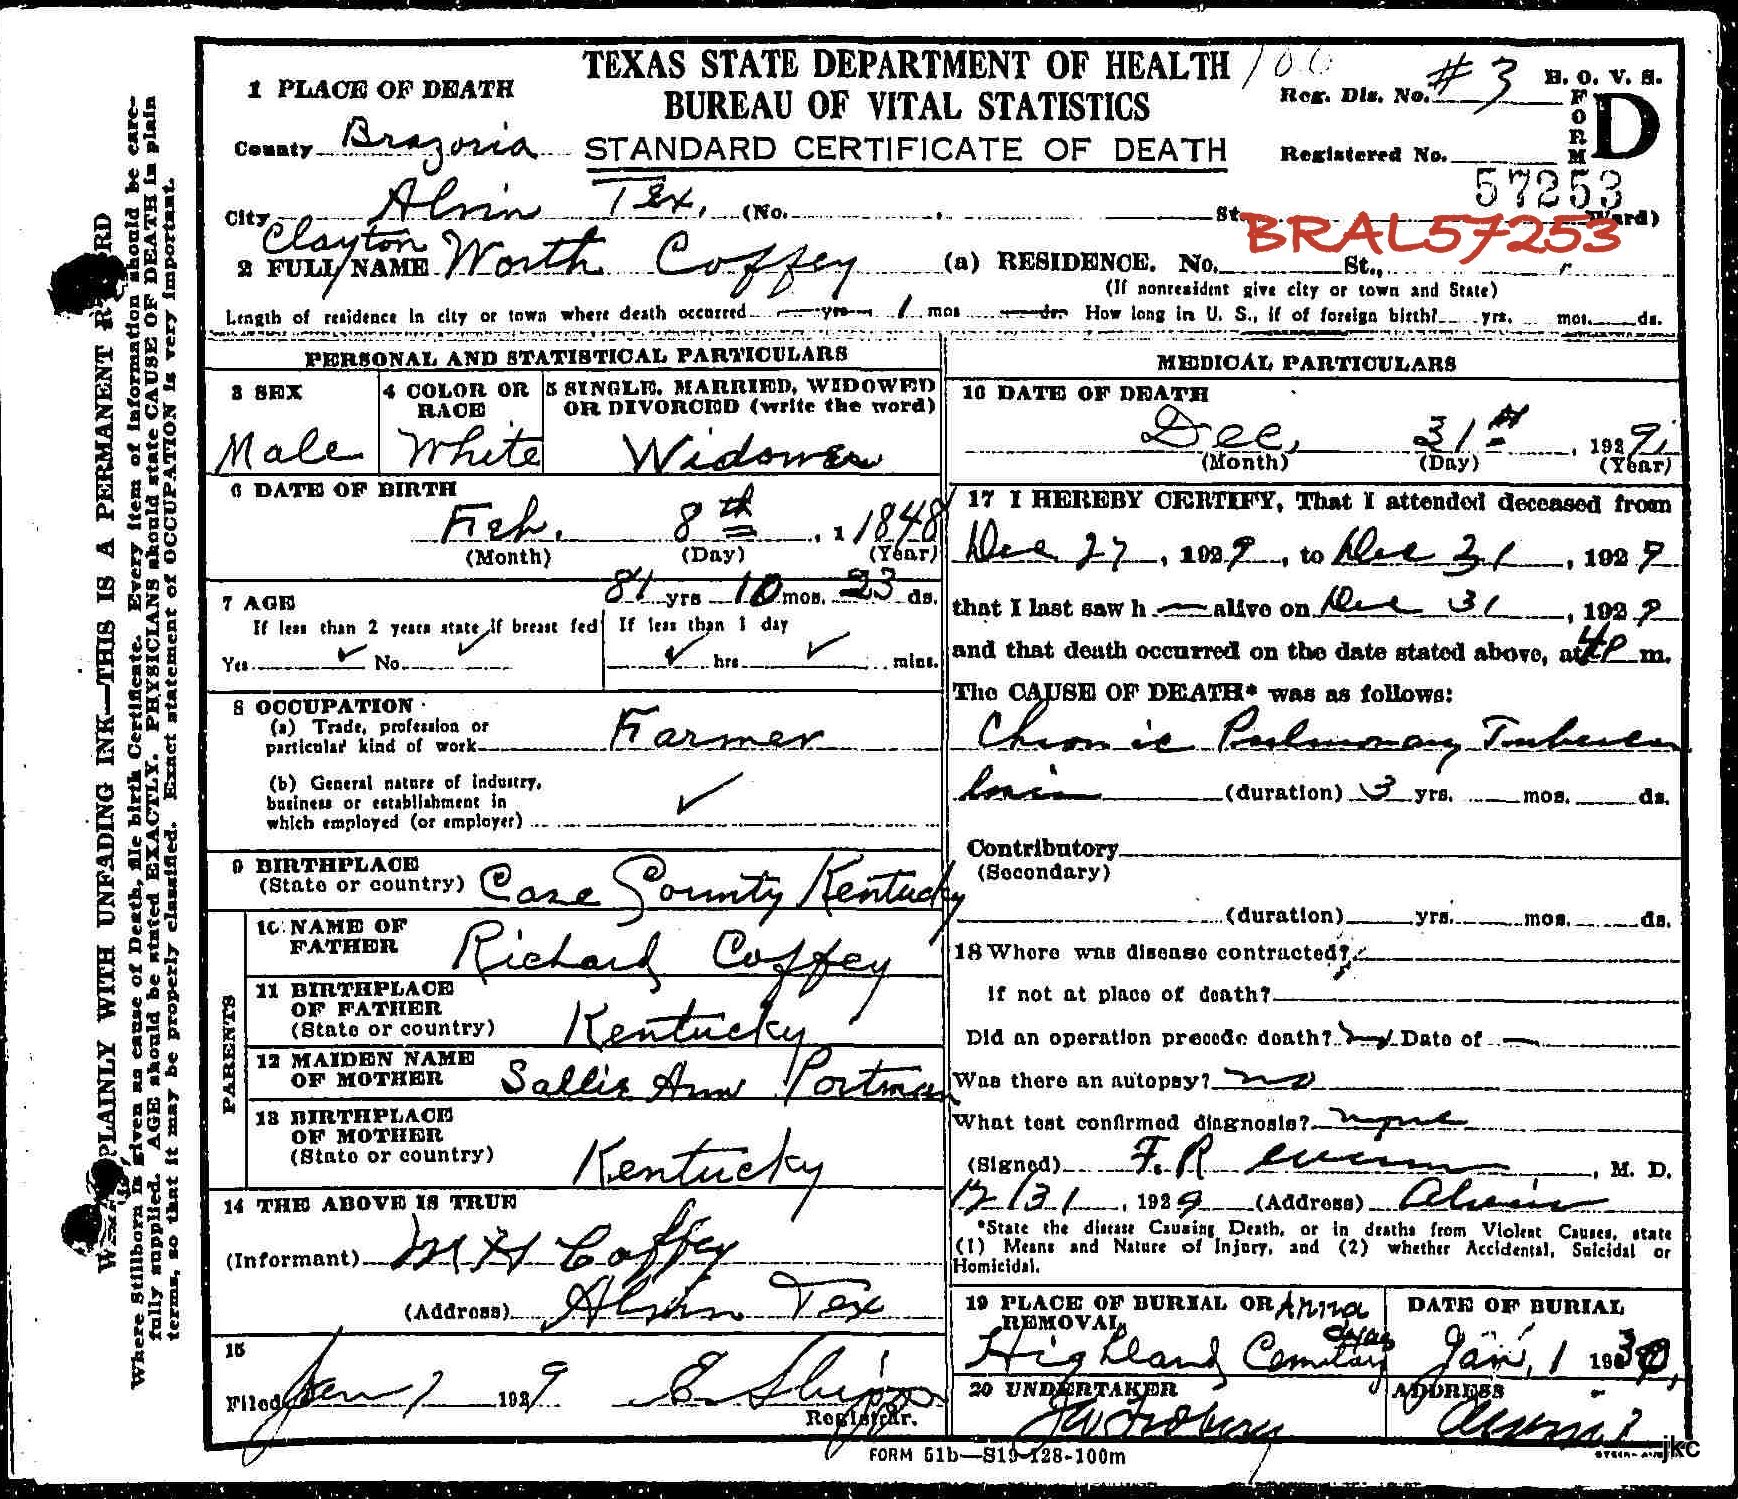 TEXAS STATE DEPARTMENT OF HEALTH
BUREAU OF VITAL STATISTICS
STANDARD CERTIFICATE OF DEATH
100
Reg. Dis. No. #3
B. O. V. S.
FORM D
Registered No.
57253
BRAL57253
1 PLACE OF DEATH
County Brazoria
City Alvin Tex. (No. St. Ward)
Clayton
2 FULL NAME Worth Coffey (a) RESIDENCE. No. St.,
(If nonresident give city or town and State)
Length of residence in city or town where death occurred — yrs — 1 mos — ds. How long in U. S., if of foreign birth? yrs. mos. ds.
PERSONAL AND STATISTICAL PARTICULARS
3 SEX
Male
4 COLOR OR RACE
White
5 SINGLE, MARRIED, WIDOWED
OR DIVORCED (write the word)
Widower
6 DATE OF BIRTH
Feb. 8th, 1 1848
(Month) (Day) (Year)
7 AGE 81 yrs 10 mos. 23 ds.
If less than 2 years state if breast fed
Yes ✓ No ✓
If less than 1 day
✓ hrs ✓ mins.
8 OCCUPATION
(a) Trade, profession or
particular kind of work Farmer
(b) General nature of industry,
business or establishment in
which employed (or employer) ✓
9 BIRTHPLACE
(State or country) Case County Kentucky
PARENTS
10 NAME OF
FATHER Richard Coffey
11 BIRTHPLACE
OF FATHER
(State or country) Kentucky
12 MAIDEN NAME
OF MOTHER Sallie Ann Portman
13 BIRTHPLACE
OF MOTHER
(State or country) Kentucky
14 THE ABOVE IS TRUE
(Informant) M H Coffey
(Address) Alvin Tex
15
Filed Jan 1 1929 E Shipp
Registrar.
MEDICAL PARTICULARS
16 DATE OF DEATH
Dec, 31st, 1929
(Month) (Day) (Year)
17 I HEREBY CERTIFY, That I attended deceased from
Dec 27, 1929, to Dec 31, 1929
that I last saw h — alive on Dec 31, 1929
and that death occurred on the date stated above, at 4P m.
The CAUSE OF DEATH* was as follows:
Chronic Pulmonary Tubercu
losis (duration) 3 yrs. mos. ds.
Contributory
(Secondary)
(duration) yrs. mos. ds.
18 Where was disease contracted?
if not at place of death?
Did an operation precede death? no Date of —
Was there an autopsy? no
What test confirmed diagnosis? none
(Signed) F. R , M. D.
12/31, 1929 (Address) Alvin
*State the disease Causing Death, or in deaths from Violent Causes, state
(1) Means and Nature of Injury, and (2) whether Accidental, Suicidal or
Homicidal.
19 PLACE OF BURIAL OR Anna
REMOVAL Texas
Highland Cemetary
DATE OF BURIAL
Jan, 1 1930,
20 UNDERTAKER
ADDRESS
Alvin
FORM 51b—S19-128-100m
jkc
WRITE PLAINLY WITH UNFADING INK—THIS IS A PERMANENT RECORD
Where Stillborn is given as cause of Death, file birth Certificate. Every item of information should be care-
fully supplied. AGE should be stated EXACTLY. PHYSICIANS should state CAUSE OF DEATH in plain
terms, so that it may be properly classified. Exact statement of OCCUPATION is very important.